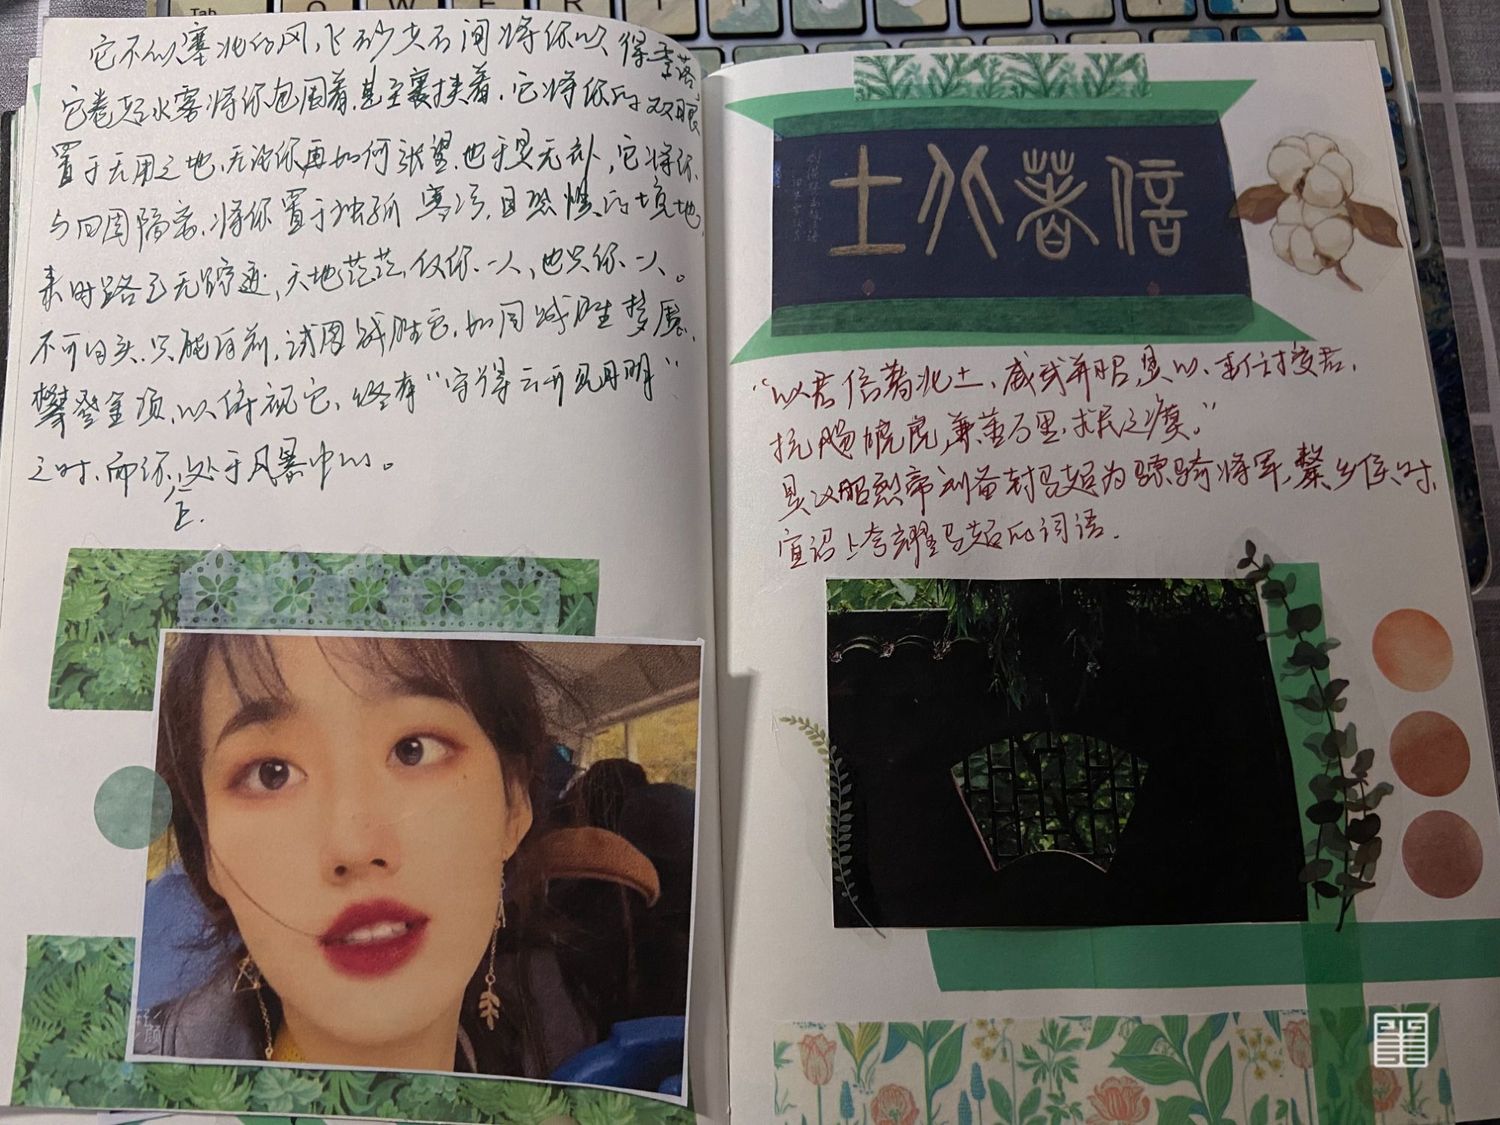 它不似塞北的风,飞砂走石间将你吹得零落。
它卷起水雾将你包围着,甚至裹挟着,它将你的双眼
置于无用之地,无论你再如何张望,也于是无补,它将你
与四周隔离,将你置于独孤 寒冷,且恐慌的境地,
来时路已无踪迹,天地茫茫,仅你一人,也只你一人。
不可回头,只能向前,试图战胜它,如同战胜梦魇,
攀登金顶,以俯视它,终有“守得云开见月明”
之时,而你,正处于风暴中心。
士北著信
“以君信著北土,威武并昭,是以 委任授君,
抗飏虓虎,兼董万里,求民之瘼。”
是汉昭烈帝刘备封马超为骠骑将军,斄乡侯时,
宣诏上夸耀马超的词语.
Tab
Q
W
E
R